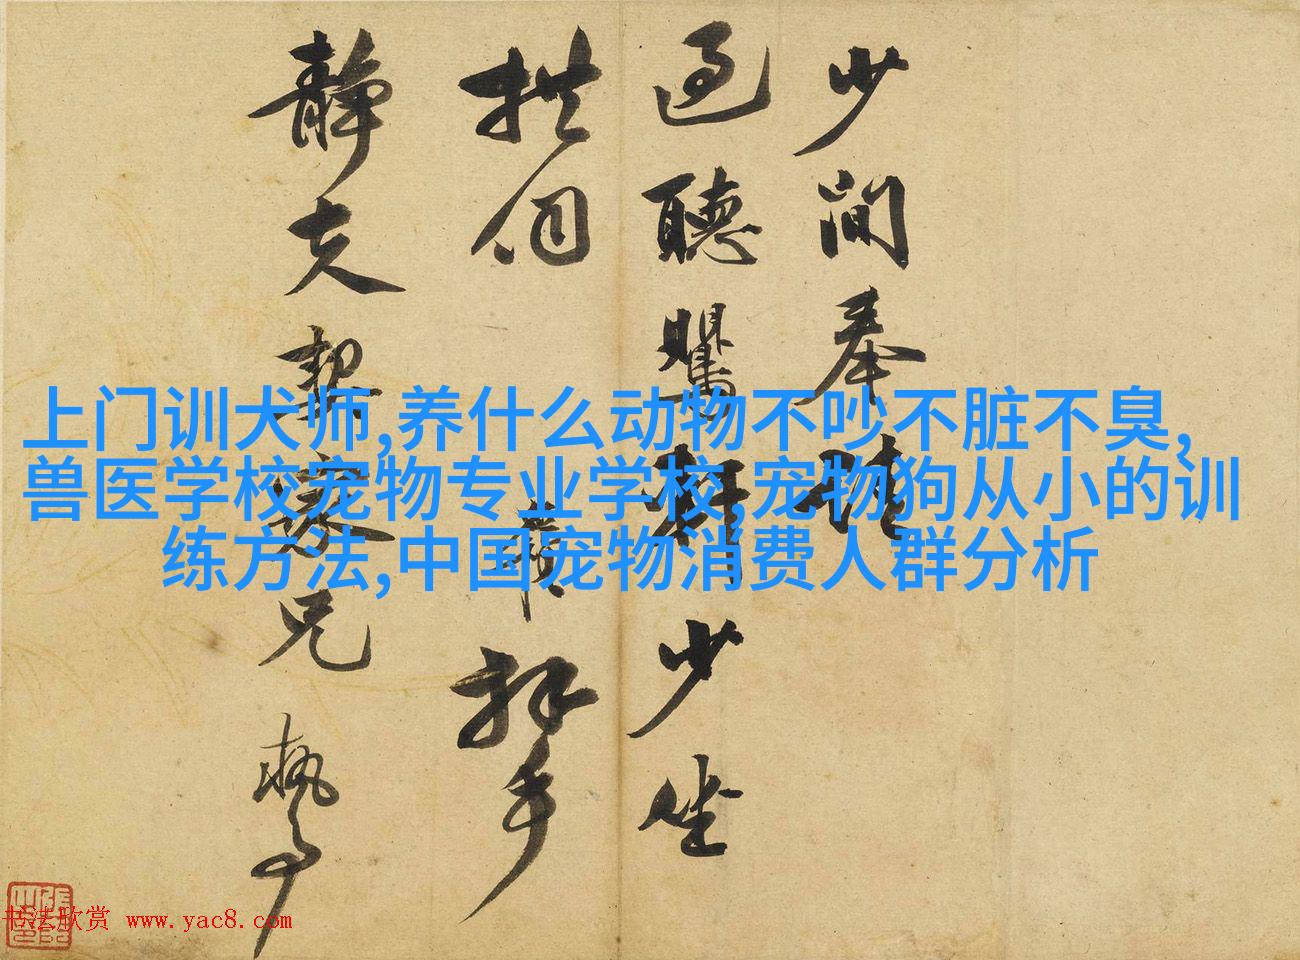 少閒奉
過聽鸎 少坐
拱伺
拜手
靜夫契家兄執事
上门训犬师,养什么动物不吵不脏不臭,
兽医学校宠物专业学校,宠物狗从小的训
练方法,中国宠物消费人群分析
书法欣赏 www.yac8.com